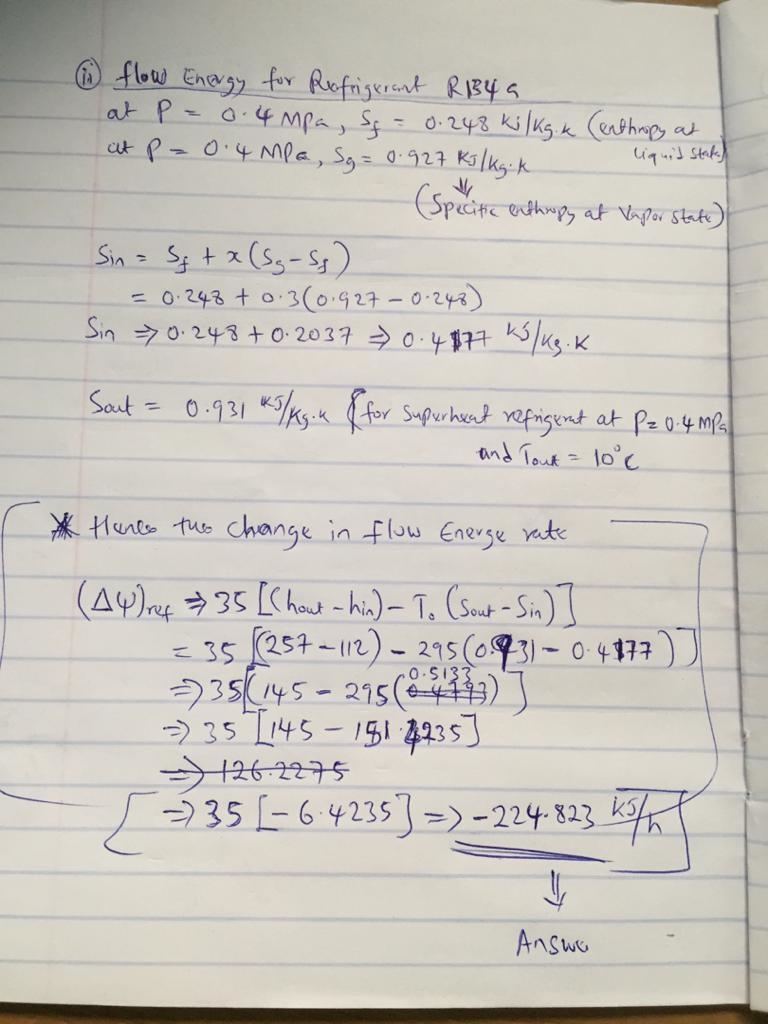 (ii) flow Energy for Reafrigerant R134a
at P = 0.4 MPa, Sf = 0.248 KJ/Kg.K (enthropy at liquid state)
at P = 0.4 MPa, Sg = 0.927 KJ/Kg.K
⇓
(Specific enthropy at Vapor state)
Sin = Sf + x(Sg - Sf)
= 0.248 + 0.3(0.927 - 0.248)
Sin ⇒ 0.248 + 0.2037 ⇒ 0.4177 KJ/Kg.K
Sout = 0.931 KJ/Kg.K (for Superheat refrigerant at P= 0.4 MPa
and Tout = 10°C
* Hence the change in flow Energe rate
(ΔΨ)ref ⇒ 35 [(hout - hin) - T₀ (Sout - Sin)]
= 35 [(257 - 112) - 295(0.931 - 0.4177)]
⇒ 35[(145 - 295(0.5133)]
⇒ 35 [145 - 151.4235]
⇒ 126.2275
⇒ 35 [-6.4235] ⇒ -224.823 KJ/h
⇓
Answe